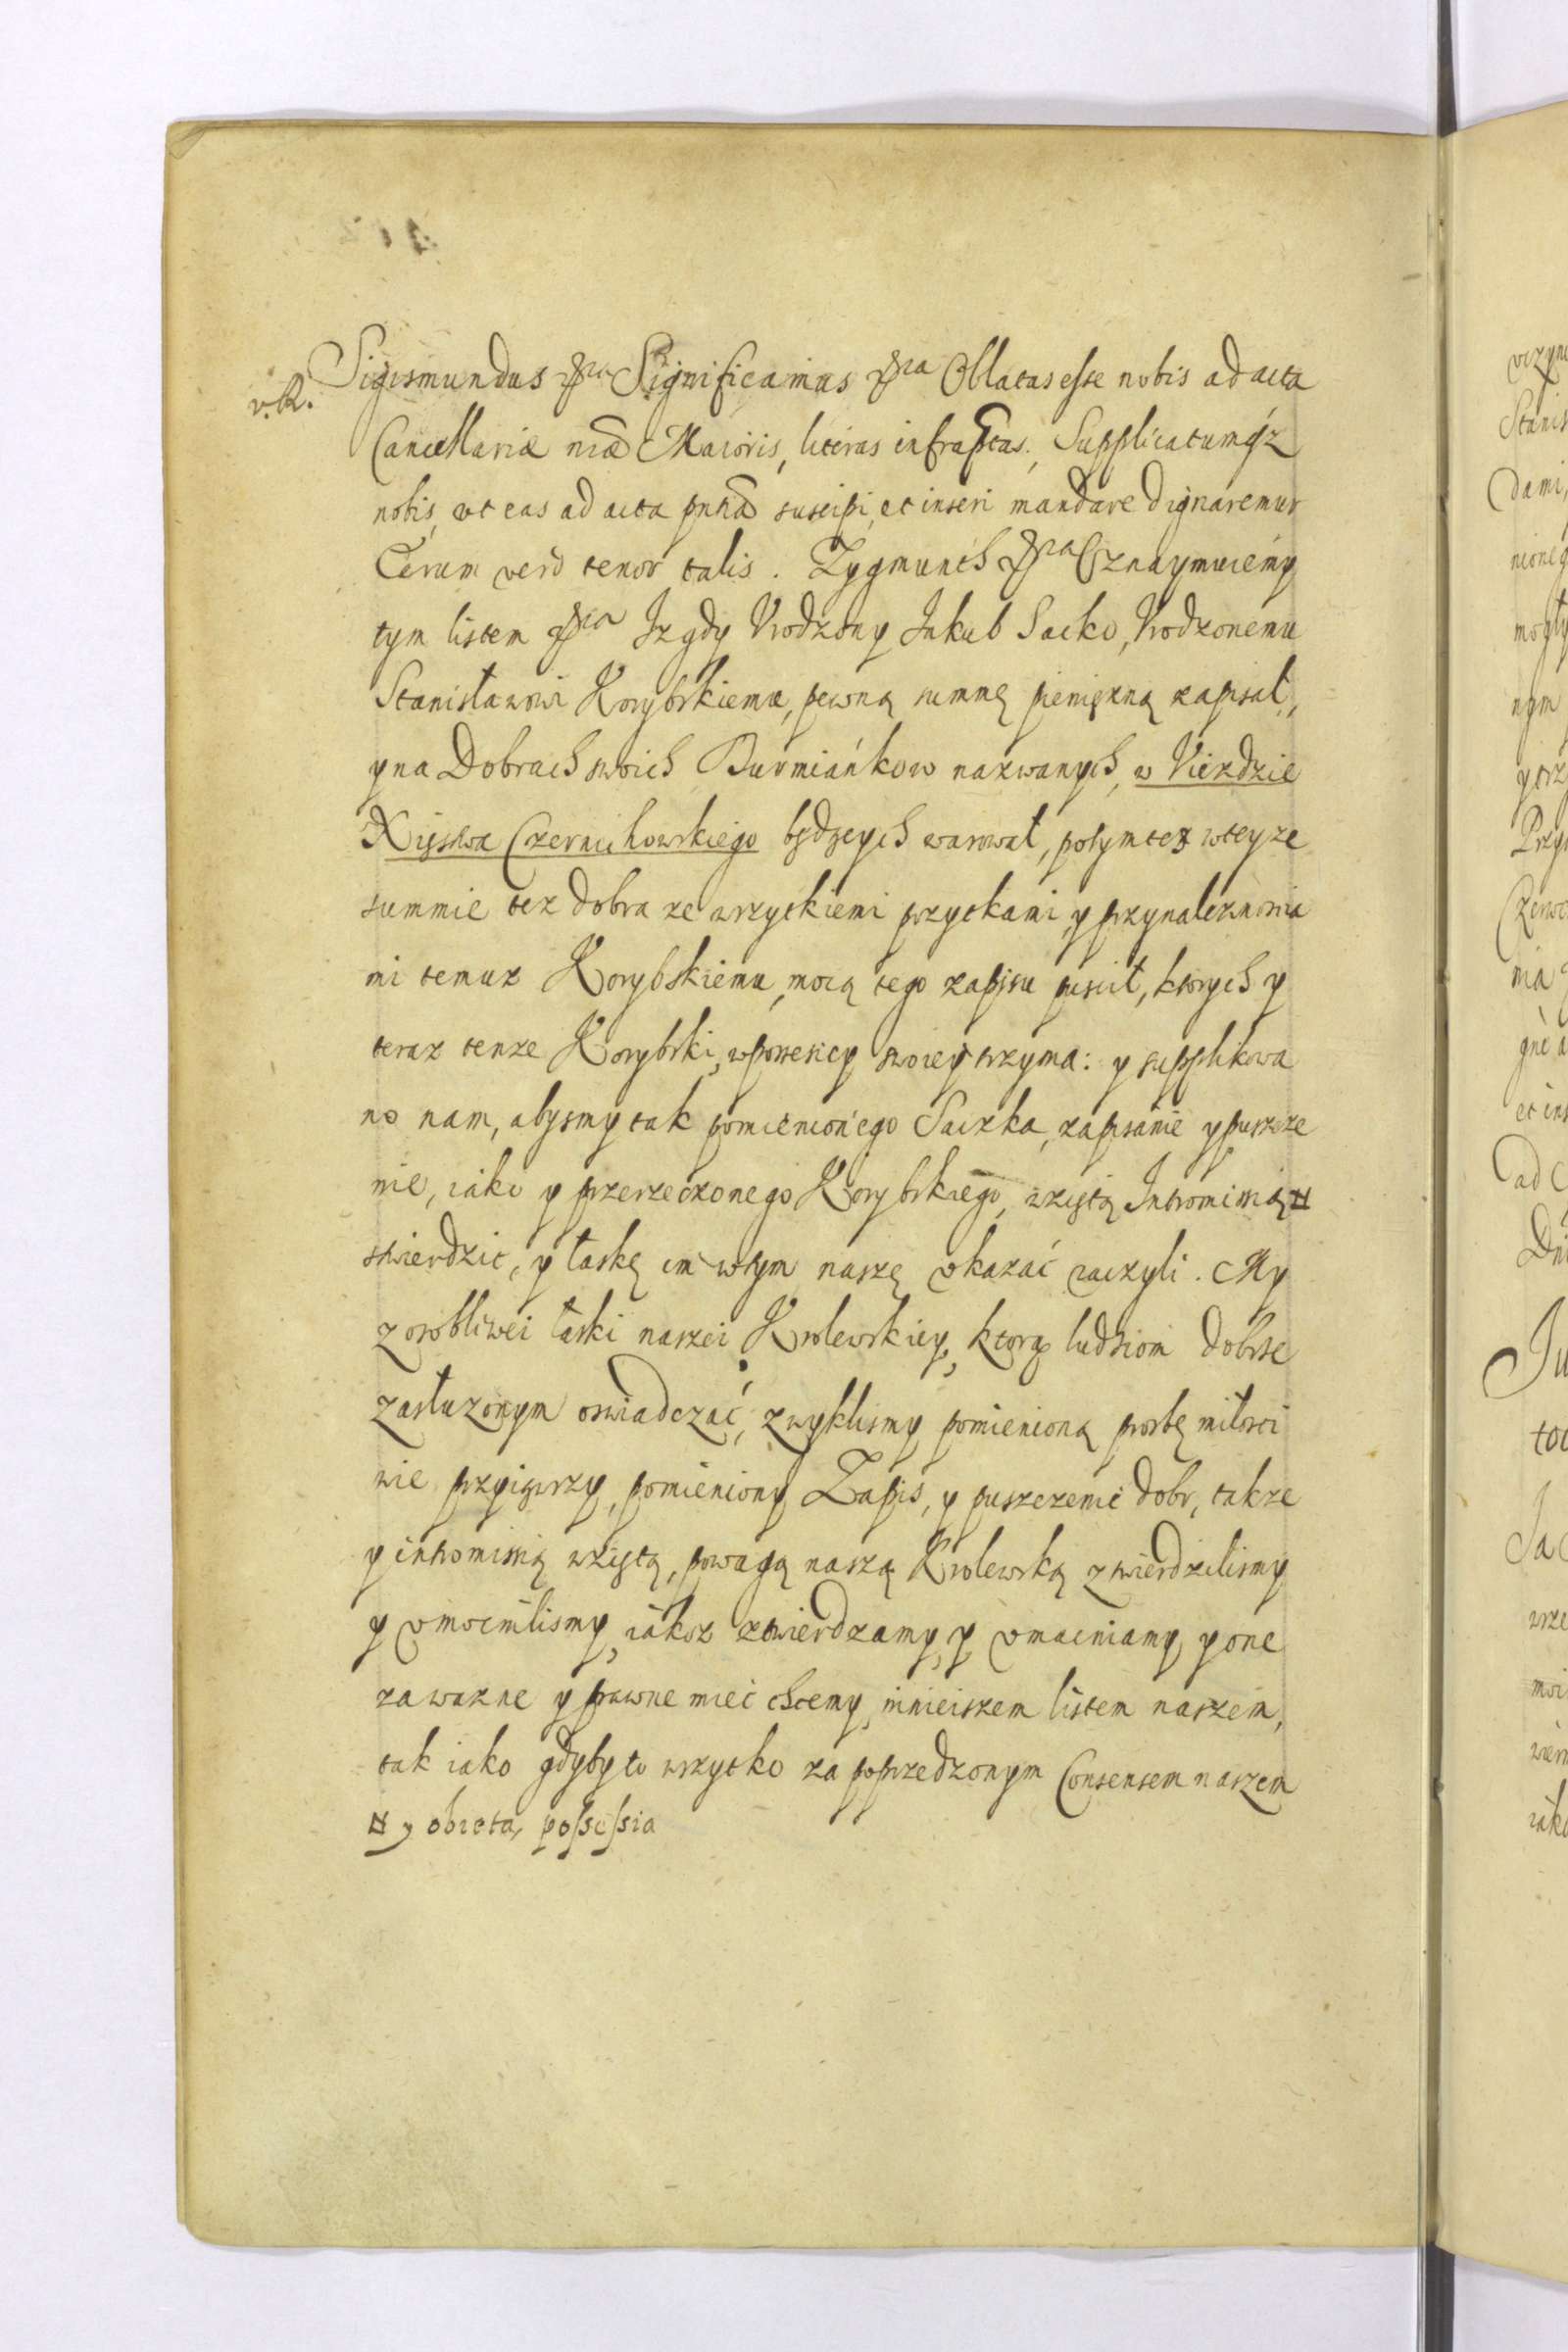 Sigismundus &ra Significamus &ra Oblatas esse nobis ad acta
v.R.
Cancellariæ nræ Maioris, literas infraptas, Supplicatumqz
nobis, vt eas ad acta pnña suscipi, et inseri mandare dignaremur
Earum verò tenor talis. Zygmunth &ra Oznaymuiemy
tym listem &ra Iz gdy Vrodzony Jakub Sacko, Vrodzonemu
Stanisławowi Korybskiemu, pewną summę pienięzną zapisał,
y na Dobrach swoich Burmiánkow nazwanych, w Viezdzie
Xięstwa Czernichowskiego będących warował, potym tez w teyze
summie tez dobra ze wszytkiemi pozytkami, y przynaleznoscia
mi temuz Korybskiemu, mocą tego zapisu puscił, ktorych y
teraz tenze Korybski, w possessiey swoiey trzyma: y supplikowa
no nam, abysmy tak pomienionego Saczka, zapisanie y puszcze
nie, iako y przerzeczonego Korybskiego, wziętą Intromissią #
stwierdzic, y łaskę im w tym naszę okazać raczyli. My
z osobliwei łaski naszei Krolewskiey, ktorą ludziom dobrze
zasłuzonym oswiadczać, zwyklismy pomienioną prosbę miłosci
wie przyiąwszy, pomieniony Zapis, y puszczenie dobr, takze
y intromissią wziętą, powagą naszą Krolewską ztwierdzilismy
y vmocnilismy, iakoz ztwierdzamy, y vmacniamy, y one
za wazne y prawne miec chcemy, ninieiszem listem naszem,
tak iako gdyby to wszytko za poprzedzonym Consensem naszem
# y obięta, possessia